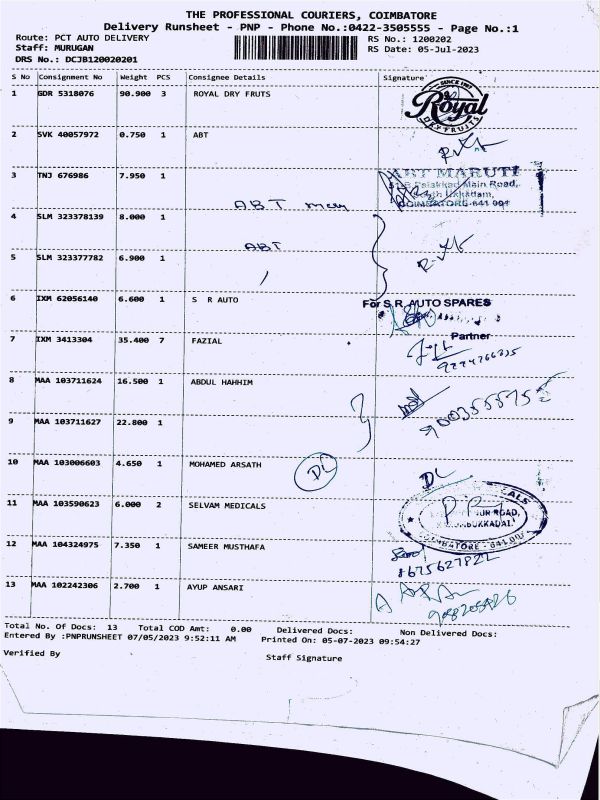 THE PROFESSIONAL COURIERS, COIMBATORE
Delivery Runsheet - PNP - Phone No.:0422-3505555 - Page No.:1
Route: PCT AUTO DELIVERY RS No.: 1200202
Staff: MURUGAN RS Date: 05-Jul-2023
DRS No.: DCJB120020201
S No Consignment No Weight PCS Consignee Details Signature
1 GDR 5318076 90.900 3 ROYAL DRY FRUTS
SINCE 1987
Royal
DRY FRUITS
2 SVK 40057972 0.750 1 ABT
3 TNJ 676986 7.950 1
ABT MARUTI
Palakkad Main Road,
COIMBATORE-641 001
ABT
4 SLM 323378139 8.000 1
ABT
5 SLM 323377782 6.900 1
6 IXM 62056140 6.600 1 S R AUTO
For S.R. AUTO SPARES
Partner
7 IXM 3413304 35.400 7 FAZIAL
8 MAA 103711624 16.500 1 ABDUL HAHHIM
9 MAA 103711627 22.800 1
10 MAA 103006603 4.650 1 MOHAMED ARSATH
DL DL
11 MAA 103590623 6.000 2 SELVAM MEDICALS
12 MAA 104324975 7.350 1 SAMEER MUSTHAFA
13 MAA 102242306 2.700 1 AYUP ANSARI
Total No. Of Docs: 13 Total COD Amt: 0.00 Delivered Docs: Non Delivered Docs:
Entered By :PNPRUNSHEET 07/05/2023 9:52:11 AM Printed On: 05-07-2023 09:54:27
Verified By Staff Signature